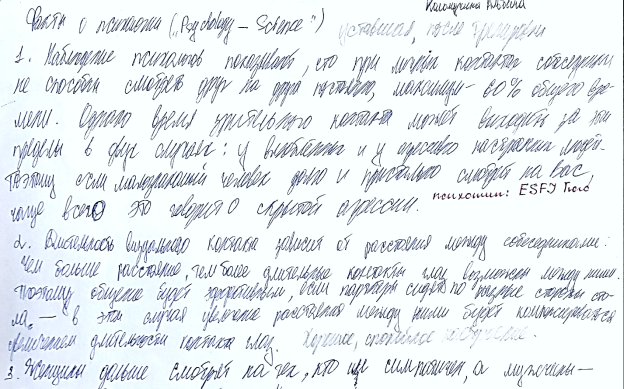 Факты о психологии („Psychology – Science") уставшая, после тренировки
1. Наблюдение психологов показывают, что при личных контактах собеседники
не способны смотреть друг на друга постоянно, максимум – 60% общего вре-
мени. Однако время зрительного контакта может выходить за эти
пределы в двух случаях: у влюбленных и у агрессивно настроенных людей.
Поэтому если малознакомый человек долго и пристально смотрит на вас,
чаще всего это говорит о скрытой агрессии. психотип: ESFJ
2. Длительность визуального контакта зависит от расстояния между собеседниками:
Чем больше расстояние, тем более длительные контакты глаз возможны между ними.
Поэтому общение будет эффективным, если партнеры сидят по разные стороны сто-
ла. – в этом случае увеличение расстояния между ними будет компенсироваться
увеличением длительности контакта глаз. Хорошее, спокойное
3. Женщины дольше смотрят на тех, кто им симпатичен, а мужчины –